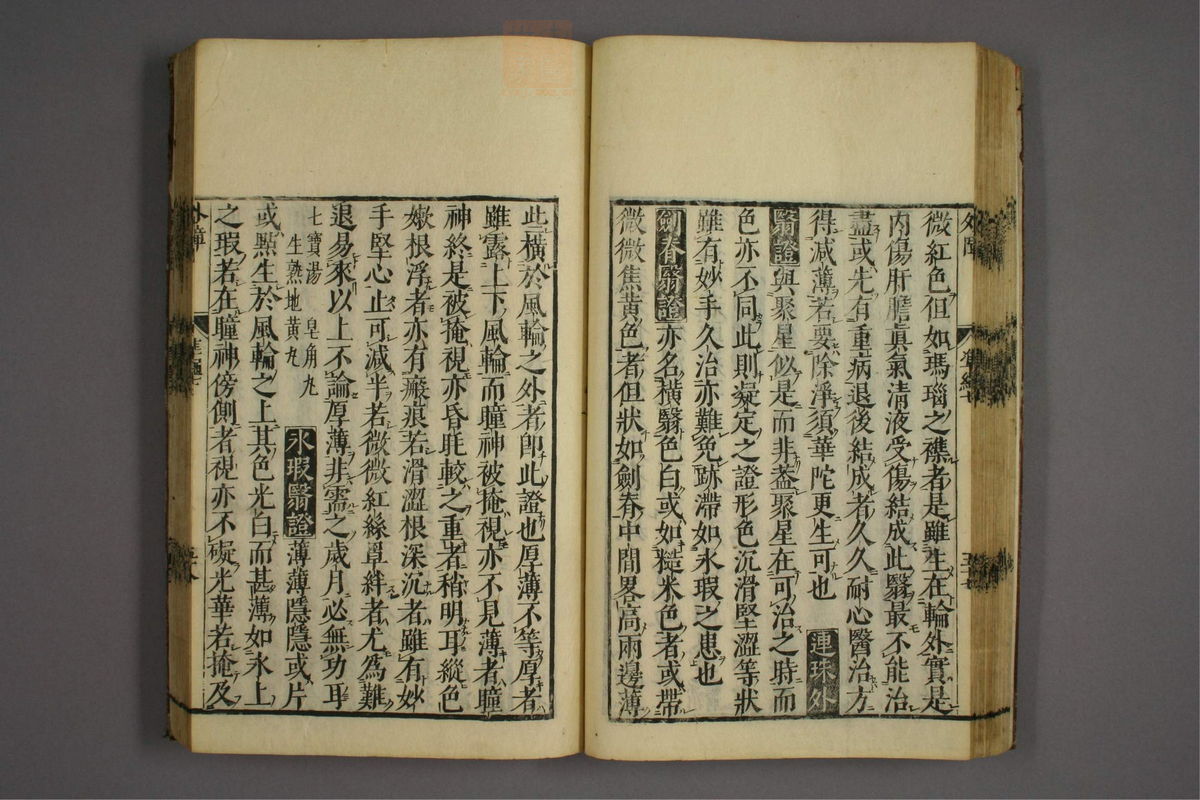 微紅色但如瑪瑙之襍者是雖生在輪外實是
内傷肝膽眞氣清液受傷結成此翳最不能治
盡或先有重病退後結成者久久耐心醫治方
得减薄若要除淨須華陀更生可也 連珠外
翳證與聚星似是而非葢聚星在可治之時而
色亦不同此則凝定之證形色沉滑堅澀等狀
雖有妙手久治亦難免跡滯如氷瑕之患也
劍脊翳證亦名橫翳色白或如糙米色者或帶
微微焦黄色者但狀如劍脊中間畧高兩邊薄
此橫於風輪之外者卽此證也厚薄不等厚者
雖露上下風輪而瞳神被掩視亦不見薄者瞳
神終是被掩視亦昏眊較之重者稍明耳縱色
嫩根浮者亦有瘢痕若滑澀根深沉者雖有妙
手堅心止可减半若微微紅絲罩絆者尤爲難
退易來以上不論厚薄非需之歲月必無功耳
七寶湯 皂角丸
生熟地黄丸 氷瑕翳證薄薄隱隱或片
或點生於風輪之上其色光白而甚薄如氷上
之瑕若在瞳神傍側者視亦不礙光華若掩及
外障